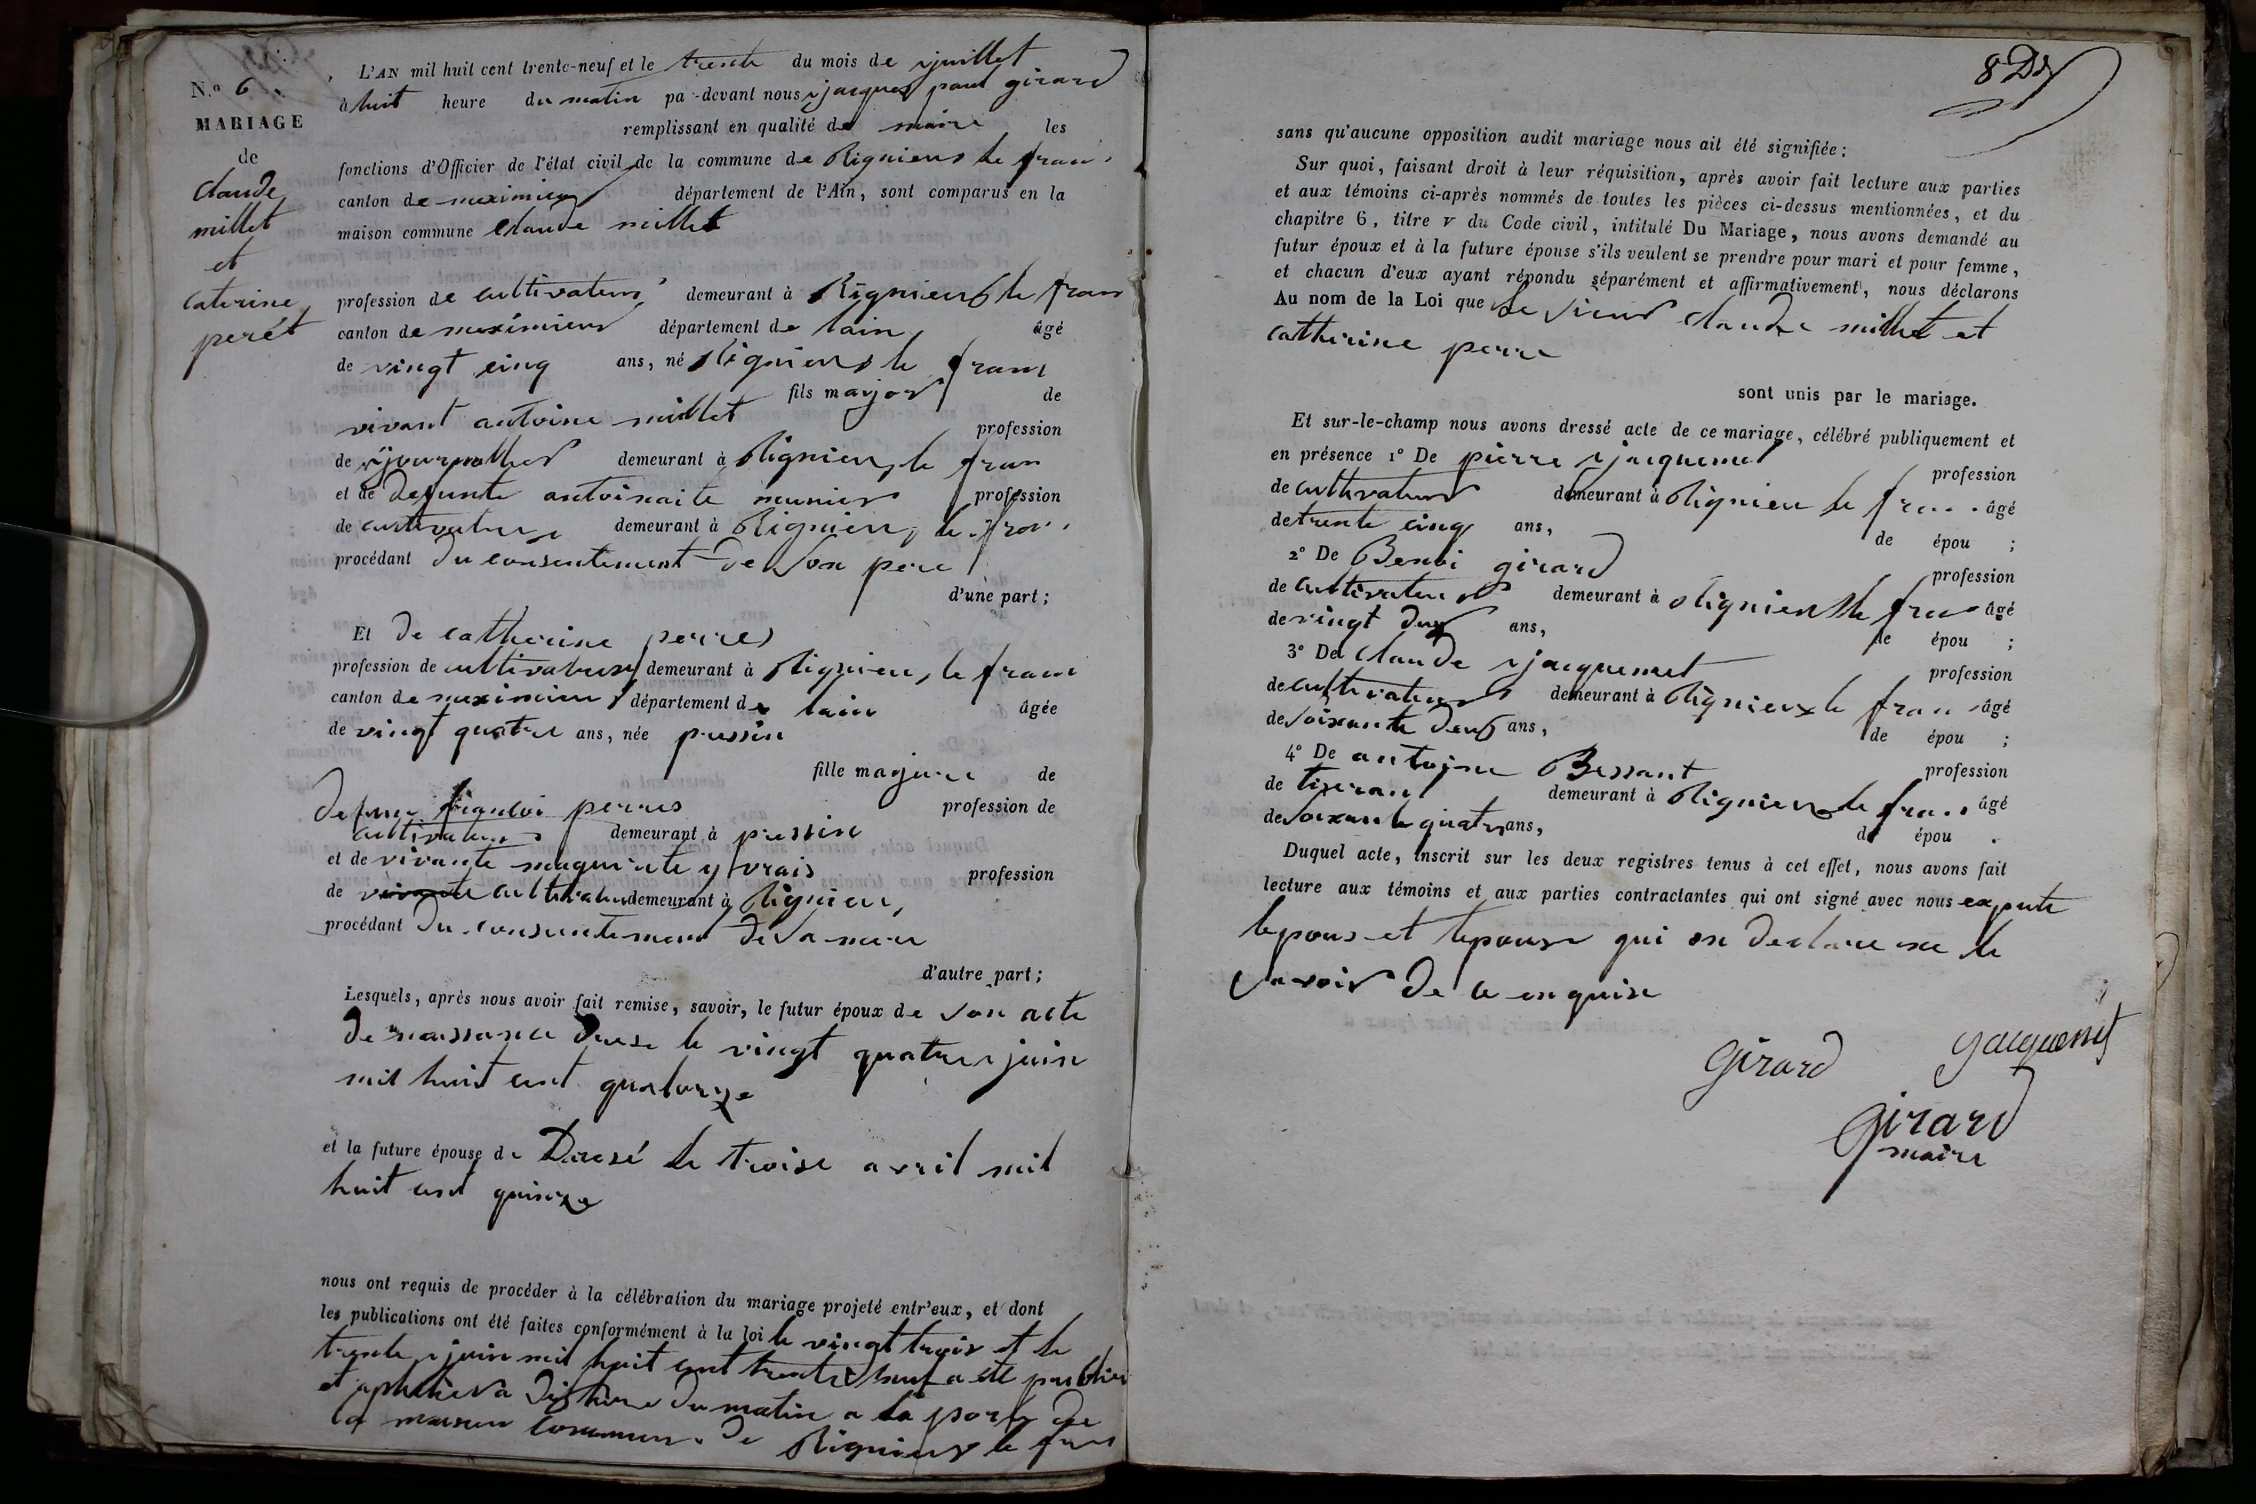 N.º 6
MARIAGE
de
Claude
millet
et
caterine
perét
L'AN mil huit cent trente-neuf et le trente du mois de juillet
à huit heure du matin pa-devant nous jacques paul girard
remplissant en qualité de maire les
fonctions d'Officier de l'état civil de la commune de Rignieux le fran
canton de meximieux département de l'Ain, sont comparus en la
maison commune Claude millet
profession de cultivateur demeurant à Rignieux le fran
canton de meximieux département de lain âgé
de vingt cinq ans, né Rignieux le fran
fils major de
vivant antoine millet profession
de journallier demeurant à Rignieu le fran
et de defunte antoinaite munier profession
de cultivateur demeurant à Rignieu le fran
procédant du consentement de son pere
d'une part;
Et de catherine perres
profession de cultivateur demeurant à Rignieu le fran
canton de meximieu département de lain âgée
de vingt quatre ans, née pressin
fille majure de
defunt perres profession de
cultivateur demeurant à pressin
et de vivante profession
de cultivateur demeurant à Rignieu
procédant du consentement de sa mere
d'autre part;
Lesquels, après nous avoir fait remise, savoir, le futur époux de son acte
de naissance le vingt quatre juin
mil huit cent quatorze
et la future épouse de le troise avril mil
huit cent quinze
nous ont requis de procéder à la célébration du mariage projeté entr'eux, et dont
les publications ont été faites conformément à la loi le vingt trois et le
trente juin mil huit cent trente neuf a été publier
et à dix heure du matin a la porte de
la maison commune de Rignieux le fran
8
sans qu'aucune opposition audit mariage nous ait été signifiée:
Sur quoi, faisant droit à leur réquisition, après avoir fait lecture aux parties
et aux témoins ci-après nommés de toutes les pièces ci-dessus mentionnées, et du
chapitre 6, titre V du Code civil, intitulé Du Mariage, nous avons demandé au
futur époux et à la future épouse s'ils veulent se prendre pour mari et pour femme,
et chacun d'eux ayant répondu séparément et affirmativement, nous déclarons
Au nom de la Loi que le sieur Claude millet et
catherine perre
sont unis par le mariage.
Et sur-le-champ nous avons dressé acte de ce mariage, célébré publiquement et
en présence 1º De pierre jacquemet profession
de cultivateur demeurant à Rignieu le fran âgé
de trente cinq ans, de épou ;
2º De Benoi girard profession
de cultivateur demeurant à Rignieux le fran âgé
de vingt deux ans, de épou ;
3º De Claude jacquemet profession
de cultivateur demeurant à Rignieux le fran âgé
de soixante deux ans, de épou ;
4º De antoine Bessant profession
de tiserant demeurant à Rignieux le fran âgé
de soixante quatre ans, de épou .
Duquel acte, inscrit sur les deux registres tenus à cet effet, nous avons fait
lecture aux témoins et aux parties contractantes qui ont signé avec nous expete
lepous et lepouse qui on declare ne le
savoir de ce enquise
Girard Jacquemet
Girard
maire